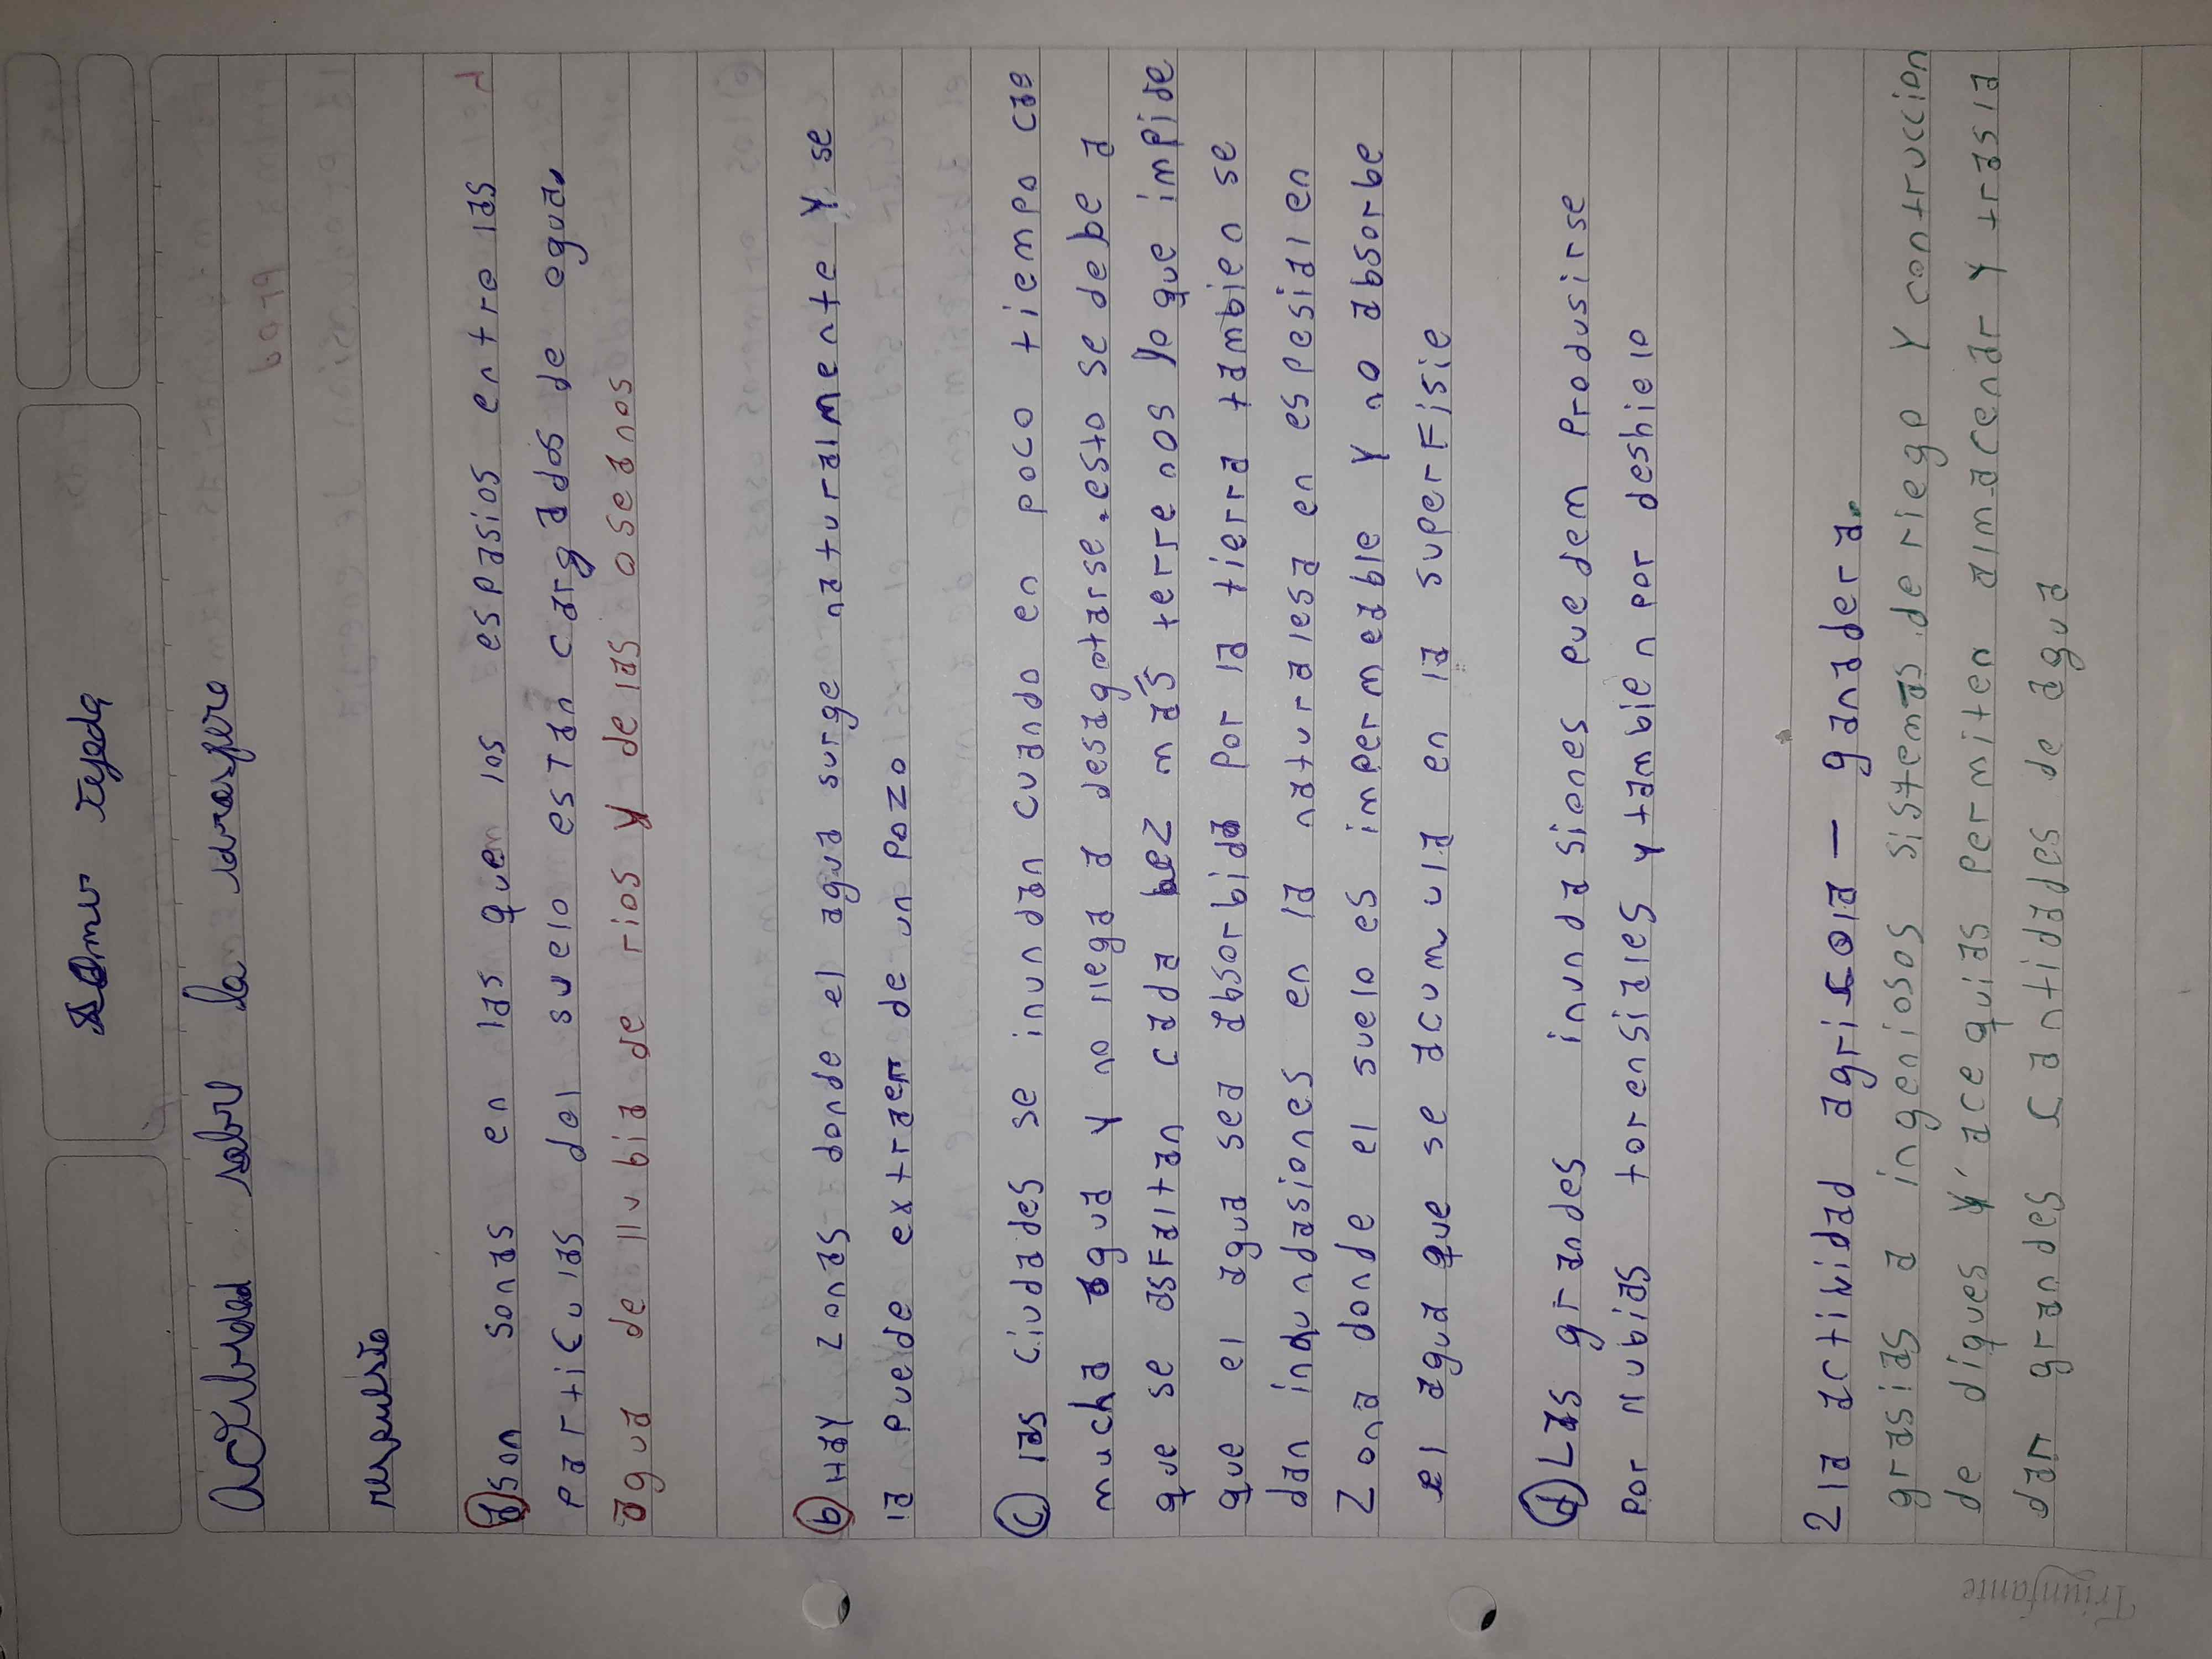 tejeda
Actividad sobre la
respuesta
a son sonas en las que los espasios entre las
particulas del suelo estan cargados de egua.
agua de llubia de rios y de las oseanos
b Hay zonas donde el agua surge naturalmente y se
la puede extraer de un pozo
c las ciudades se inundan cuando en poco tiempo cae
mucha agua y no llega a desagotarse. esto se debe a
que se asfaltan cada bez más terrenos lo que impide
que el agua sea absorbida por la tierra tambien se
dan inqundasiones en la naturalesa en espesial en
Zona donde el suelo es impermeable y no absorbe
el agua que se acumula en la superfisie
d Las grandes inundasiones puedem produsirse
por llubias torensiales y tambien por deshielo
2 la actividad agricola - ganadera.
grasias a ingeniosos sistemas de riego y contruccien
de diques y acequias permiten almacenar y trasla
dar grandes cantidades de agua
Triunfante